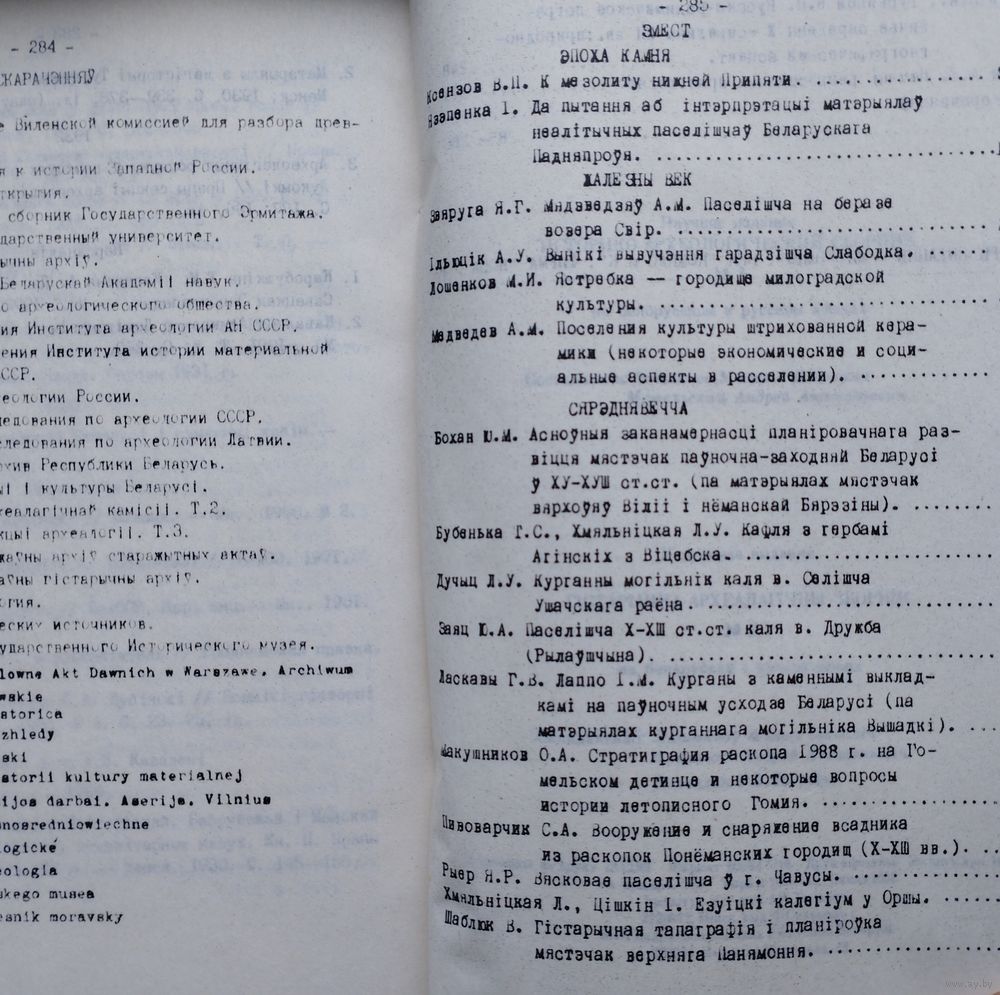 - 284 -
СКАРАЧЭННЯЎ
е Виленской комиссией для разбора древ-
я к истории Западной России.
открытия.
сборник Государственного Эрмитажа.
ударственный университет.
ычны архіў.
Беларускай Акадэміі навук.
о археологического общества.
ния Института археологии АН СССР.
ения Института истории материальной
СССР.
хеологии России.
ледования по археологии СССР.
следования по археологии Латвии.
рхив Республики Беларусь.
ыі і культуры Беларусі.
хеалагічнай камісіі. Т.2.
кцыі археалогіі. Т.3.
жаўны архіў старажытных актаў.
аўны гістарычны архіў.
огия.
ческих источников.
сударственного Исторического музея.
lowne Akt Dawnich w Warszawe. Archiwum
wskie
storica
zhledy
ski
storii kultury materialnej
ijos darbai. Aserija. Vilnius
snosredniowiechne
logické
eologia
skego musea
esnik moravsky
- 285 -
ЗМЕСТ
ЭПОХА КАМНЯ
Ксензов В.П. К мезолиту нижней Припяти.
Язэпенка І. Да пытання аб інтэрпрэтацыі матэрыялаў
неалітычных паселішчаў Беларускага
Падняпроўя.
ЖАЛЕЗНЫ ВЕК
Звяруга Я.Г. Мядзведзяў А.М. Паселішча на беразе
возера Свір.
Ільюцік А.У. Вынікі вывучэння гарадзішча Слабодка.
Лошенков М.И. Ястребка — городище милоградской
культуры.
Медведев А.М. Поселения культуры штрихованной кера-
мики (некоторые экономические и соци-
альные аспекты в расселении).
СЯРЭДНЯВЕЧЧА
Бохан Ю.М. Асноўныя заканамернасці планіровачнага раз-
віцця мястэчак паўночна-заходняй Беларусі
ў ХУ-ХУШ ст.ст. (па матэрыялах мястэчак
вярхоўяў Віліі і нёманскай Бярэзіны).
Бубенька Г.С., Хмяльніцкая Л.У. Кафля з гербамі
Агінскіх з Віцебска.
Дучыц Л.У. Курганны могільнік каля в. Селішча
Ушачскага раёна.
Заяц Ю.А. Паселішча Х-ХШ ст.ст. каля в. Дружба
(Рылаўшчына).
Ласкавы Г.В. Лаппо І.М. Курганы з каменнымі выклад-
камі на паўночным усходзе Беларусі (па
матэрыялах курганнага могільніка Вышадкі).
Макушников О.А. Стратиграфия раскопа 1988 г. на Го-
мельском детинце и некоторые вопросы
истории летописного Гомия.
Пивоварчик С.А. Вооружение и снаряжение всадника
из раскопок Понёманских городищ (Х-ХШ вв.).
Рыер Я.Р. Вясковае паселішча ў г. Чавусы.
Хмяльніцкая Л., Цішкін І. Езуіцкі калегіум у Оршы.
Шаблюк В. Гістарычная тапаграфія і планіроўка
мястэчак верхняга Панямоння.
www.ay.by